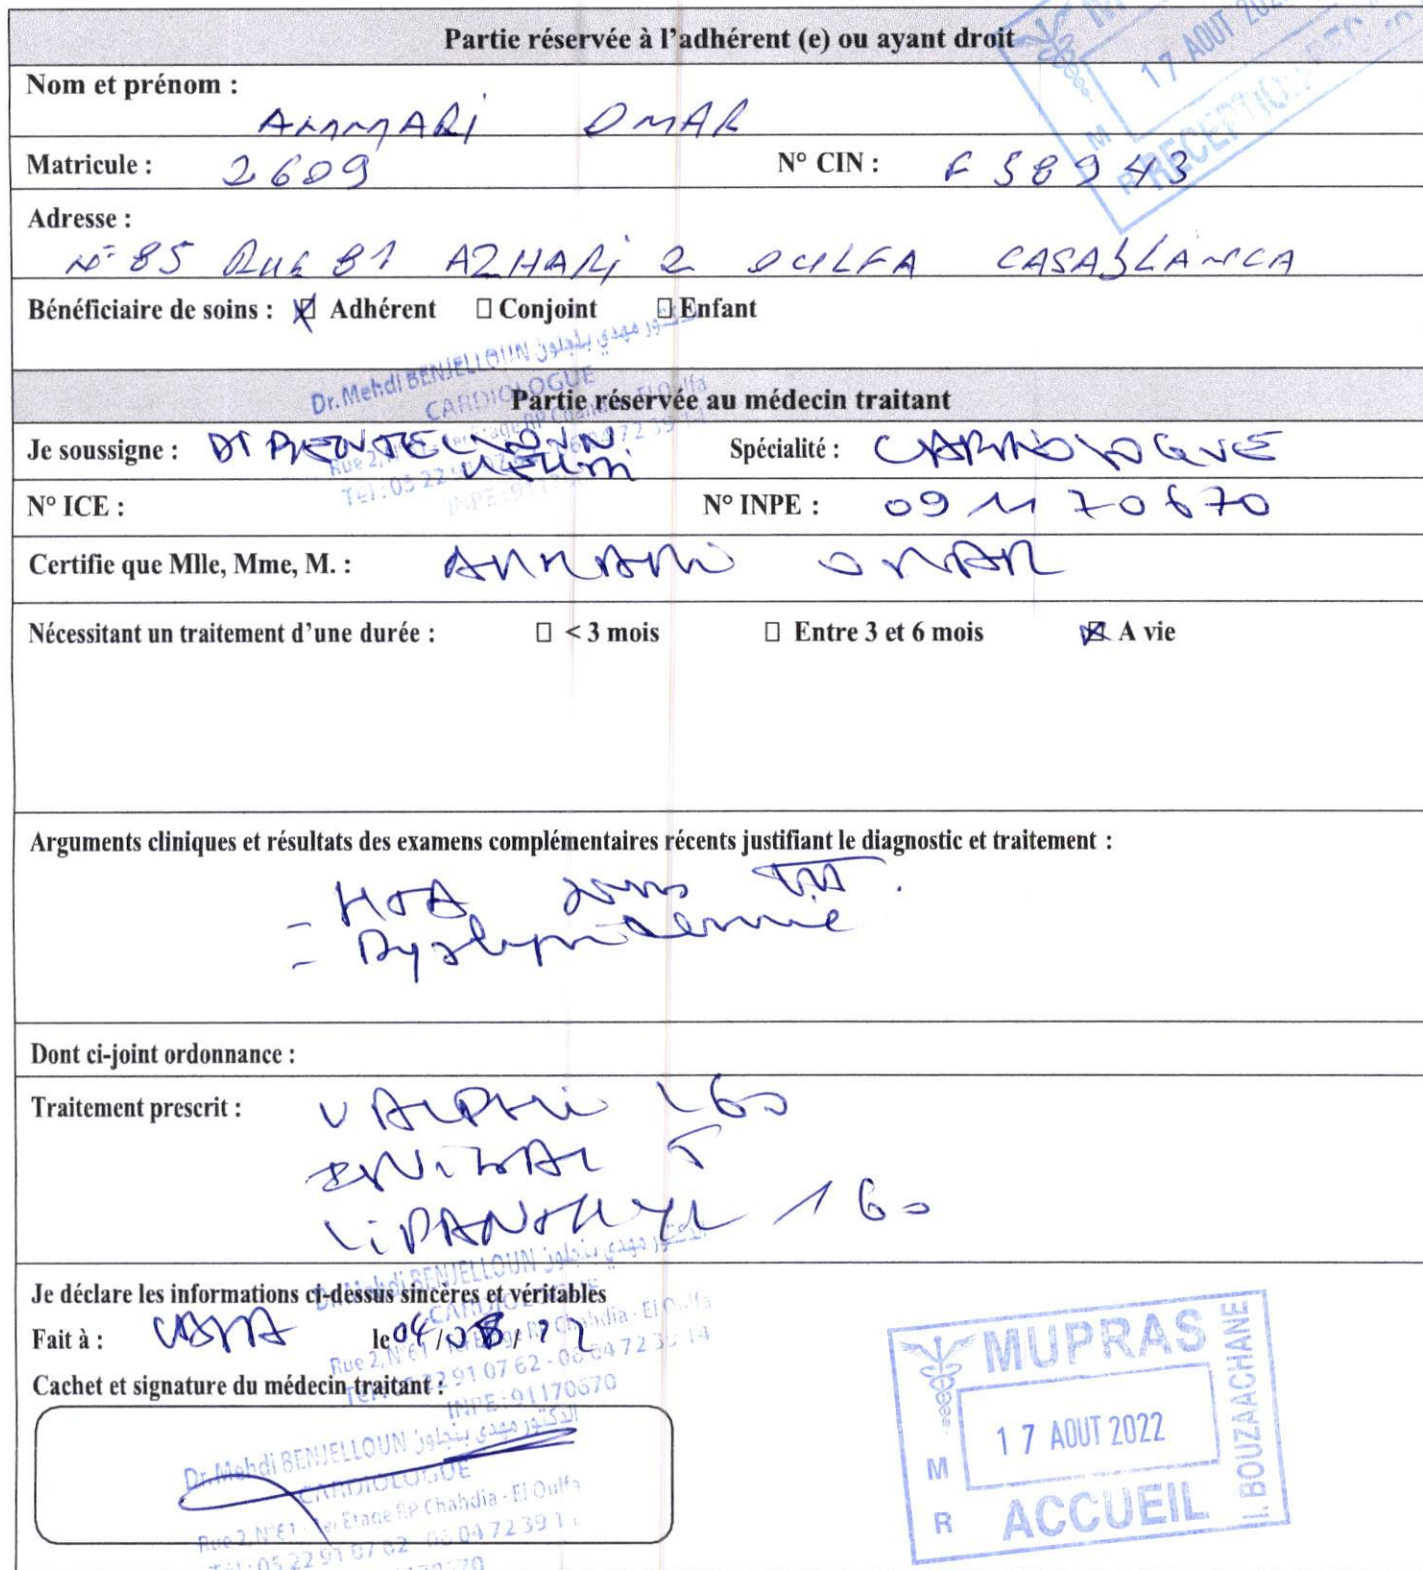 Partie réservée à l'adhérent (e) ou ayant droit
17 AOUT 202
RECEPTION
Nom et prénom :
AMMARI OMAR
Matricule : 2609 N° CIN : F 58943
Adresse :
N° 85 RUE 81 AZHARI 2 OULFA CASABLANCA
Bénéficiaire de soins : ☒ Adhérent ☐ Conjoint ☐ Enfant
Dr. Mehdi BENJELLOUN الدكتور مهدي بنجلون
CARDIOLOGUE
Partie réservée au médecin traitant
Je soussigne : Dr BENJELLOUN Spécialité : CARDIOLOGUE
MEHDI
N° ICE : N° INPE : 091170670
Certifie que Mlle, Mme, M. : AMMARI OMAR
Nécessitant un traitement d'une durée : ☐ < 3 mois ☐ Entre 3 et 6 mois ☒ A vie
Arguments cliniques et résultats des examens complémentaires récents justifiant le diagnostic et traitement :
- HTA sous TTT.
- Dyslipidemie
Dont ci-joint ordonnance :
Traitement prescrit : 160
5
LiPANTHYL 160
Je déclare les informations ci-dessus sincères et véritables
Fait à : CASA le 04/08/22
Dr. Mehdi BENJELLOUN الدكتور مهدي بنجلون
CARDIOLOGUE
Rue 2, N°61 - 1er Etage RP Chahdia - El Oulfa
Tél : 05 22 91 07 62 - 06 04 72 39 14
INPE : 91170670
Cachet et signature du médecin traitant :
Dr. Mehdi BENJELLOUN الدكتور مهدي بنجلون
CARDIOLOGUE
Rue 2, N°61 - 1er Etage RP Chahdia - El Oulfa
Tél : 05 22 91 07 62 - 06 04 72 39 1
MUPRAS
17 AOUT 2022
ACCUEIL
M
R
I. BOUZAACHANE